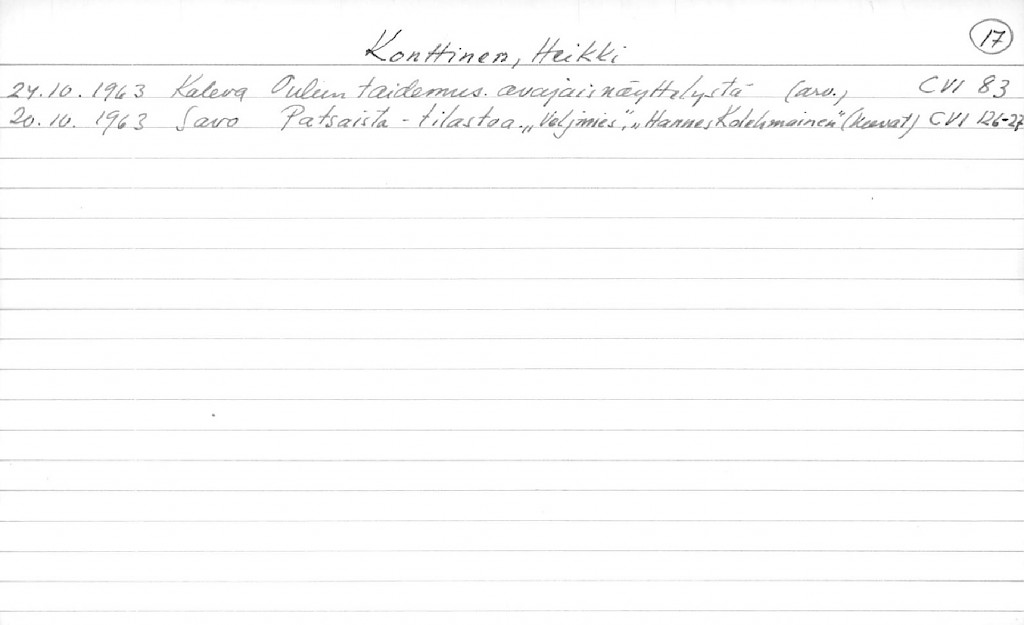 17
Konttinen, Heikki
24.10.1963 Kaleva Oulun taidemus. avajaisnäyttelystä (arv.) CVI 83
20.10.1963 Savo Patsaista - tilastoa. „Veljmies", „Hannes Kolehmainen" (kuvat) CVI 126-27